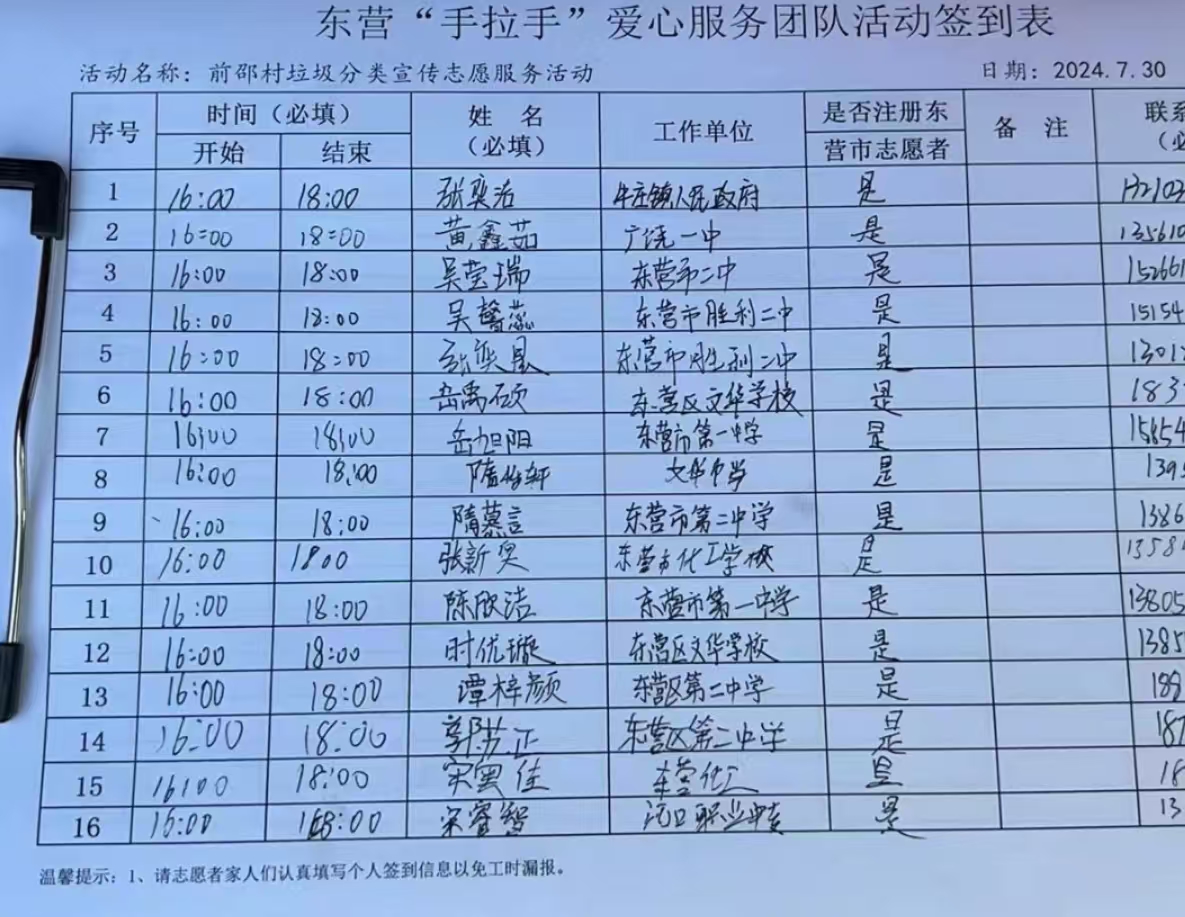 东营“手拉手”爱心服务团队活动签到表
活动名称：前邵村垃圾分类宣传志愿服务活动 日期：2024.7.30
序号 时间（必填） 姓名（必填） 工作单位 是否注册东营市志愿者 备注 联系
开始 结束
1 16:00 18:00 张奕洁 牛庄镇人民政府 是 132103
2 16:00 18:00 黄鑫茹 广饶一中 是 135610
3 16:00 18:00 吴莹瑞 东营市二中 是 152661
4 16:00 18:00 吴馨蕊 东营市胜利二中 是 15154
5 16:00 18:00 张奕晨 东营市胜利二中 是 1301
6 16:00 18:00 岳禹硕 东营区文华学校 是 183
7 16:00 18:00 岳旭阳 东营市第一中学 是 15854
8 16:00 18:00 文华中学 是 139
9 16:00 18:00 隋慕言 东营市第二中学 是 1386
10 16:00 18:00 张新奥 东营市化工学校 是 1358
11 16:00 18:00 陈欣洁 东营市第一中学 是 13805
12 16:00 18:00 时优璇 东营区文华学校 是 1385
13 16:00 18:00 谭梓颜 东营区第二中学 是 189
14 16:00 18:00 东营区第二中学 是 187
15 16:00 18:00 东营化工 是 18
16 16:00 18:00 宋睿智 河口职业中专 是 13
温馨提示：1、请志愿者家人们认真填写个人签到信息以免工时漏报。